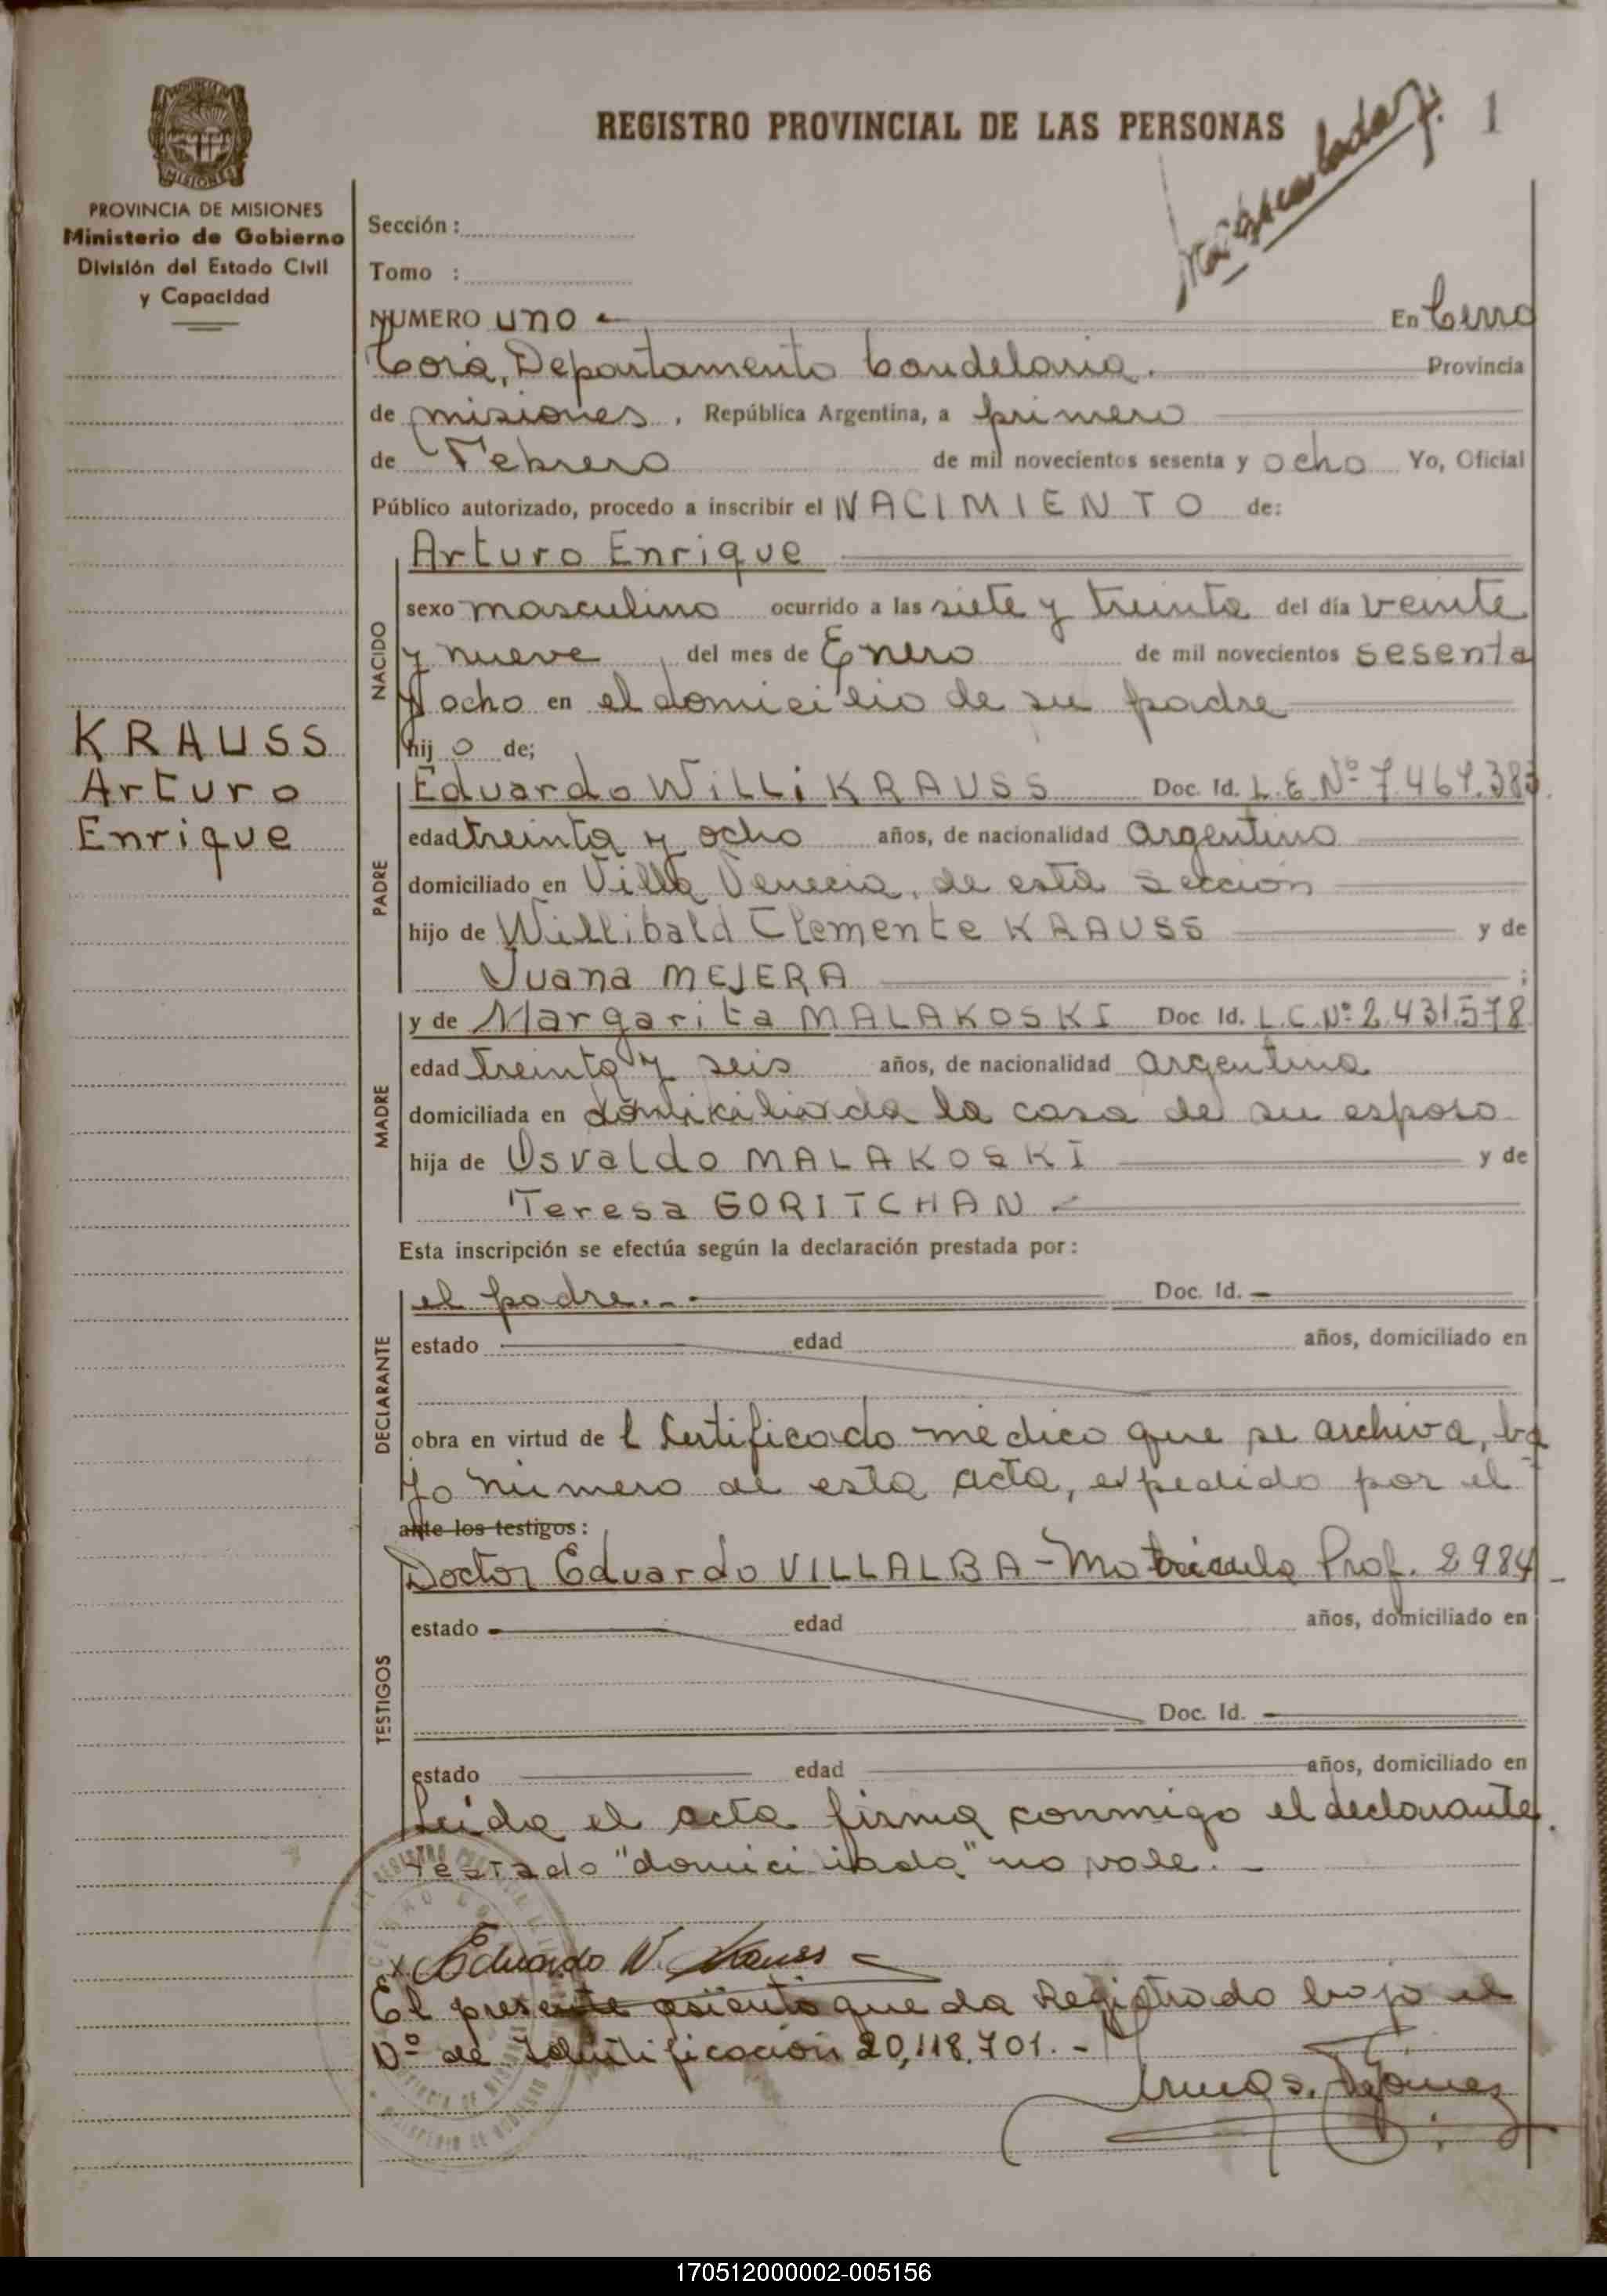 REGISTRO PROVINCIAL DE LAS PERSONAS
1
MISIONES
PROVINCIA DE MISIONES
Ministerio de Gobierno
División del Estado Civil
y Capacidad
Sección :
Tomo :
NUMERO uno En Cerro
Corá, Departamento Candelaria. Provincia
de misiones, República Argentina, a primero
de Febrero de mil novecientos sesenta y ocho Yo, Oficial
Público autorizado, procedo a inscribir el NACIMIENTO de:
Arturo Enrique
NACIDO
sexo masculino ocurrido a las siete y treinta del día veinte
y nueve del mes de Enero de mil novecientos sesenta
y ocho en el domicilio de su padre
hij o de;
KRAUSS
Arturo
Enrique
PADRE
Eduardo WiLLi KRAUSS Doc. Id. L.E. Nº 7.467.383.
edad treinta y ocho años, de nacionalidad argentino
domiciliado en Villa Venecia, de esta sección
hijo de Willibald Clemente KRAUSS y de
Juana MEJERA ;
MADRE
y de Margarita MALAKOSKI Doc. Id. L.C. Nº 2.431.578
edad treinta y seis años, de nacionalidad argentina
domiciliada en domiciliada la casa de su esposo
hija de Osvaldo MALAKOSKI y de
Teresa GORITCHAN
Esta inscripción se efectúa según la declaración prestada por:
DECLARANTE
el padre.- Doc. Id. -
estado edad años, domiciliado en
obra en virtud de l Certificado médico que se archiva, ba
jo número de esta acta, expedido por el
ante los testigos:
TESTIGOS
Doctor Eduardo VILLALBA - Matricula Prof. 2984 -
estado edad años, domiciliado en
Doc. Id.
estado edad años, domiciliado en
Leida el acta firma conmigo el declarante.
testado "domiciliada" no vale. -
x Eduardo W. Krauss
El presente asiento queda Registrado bajo el
Nº de Identificación 20,118,701. -
170512000002-005156